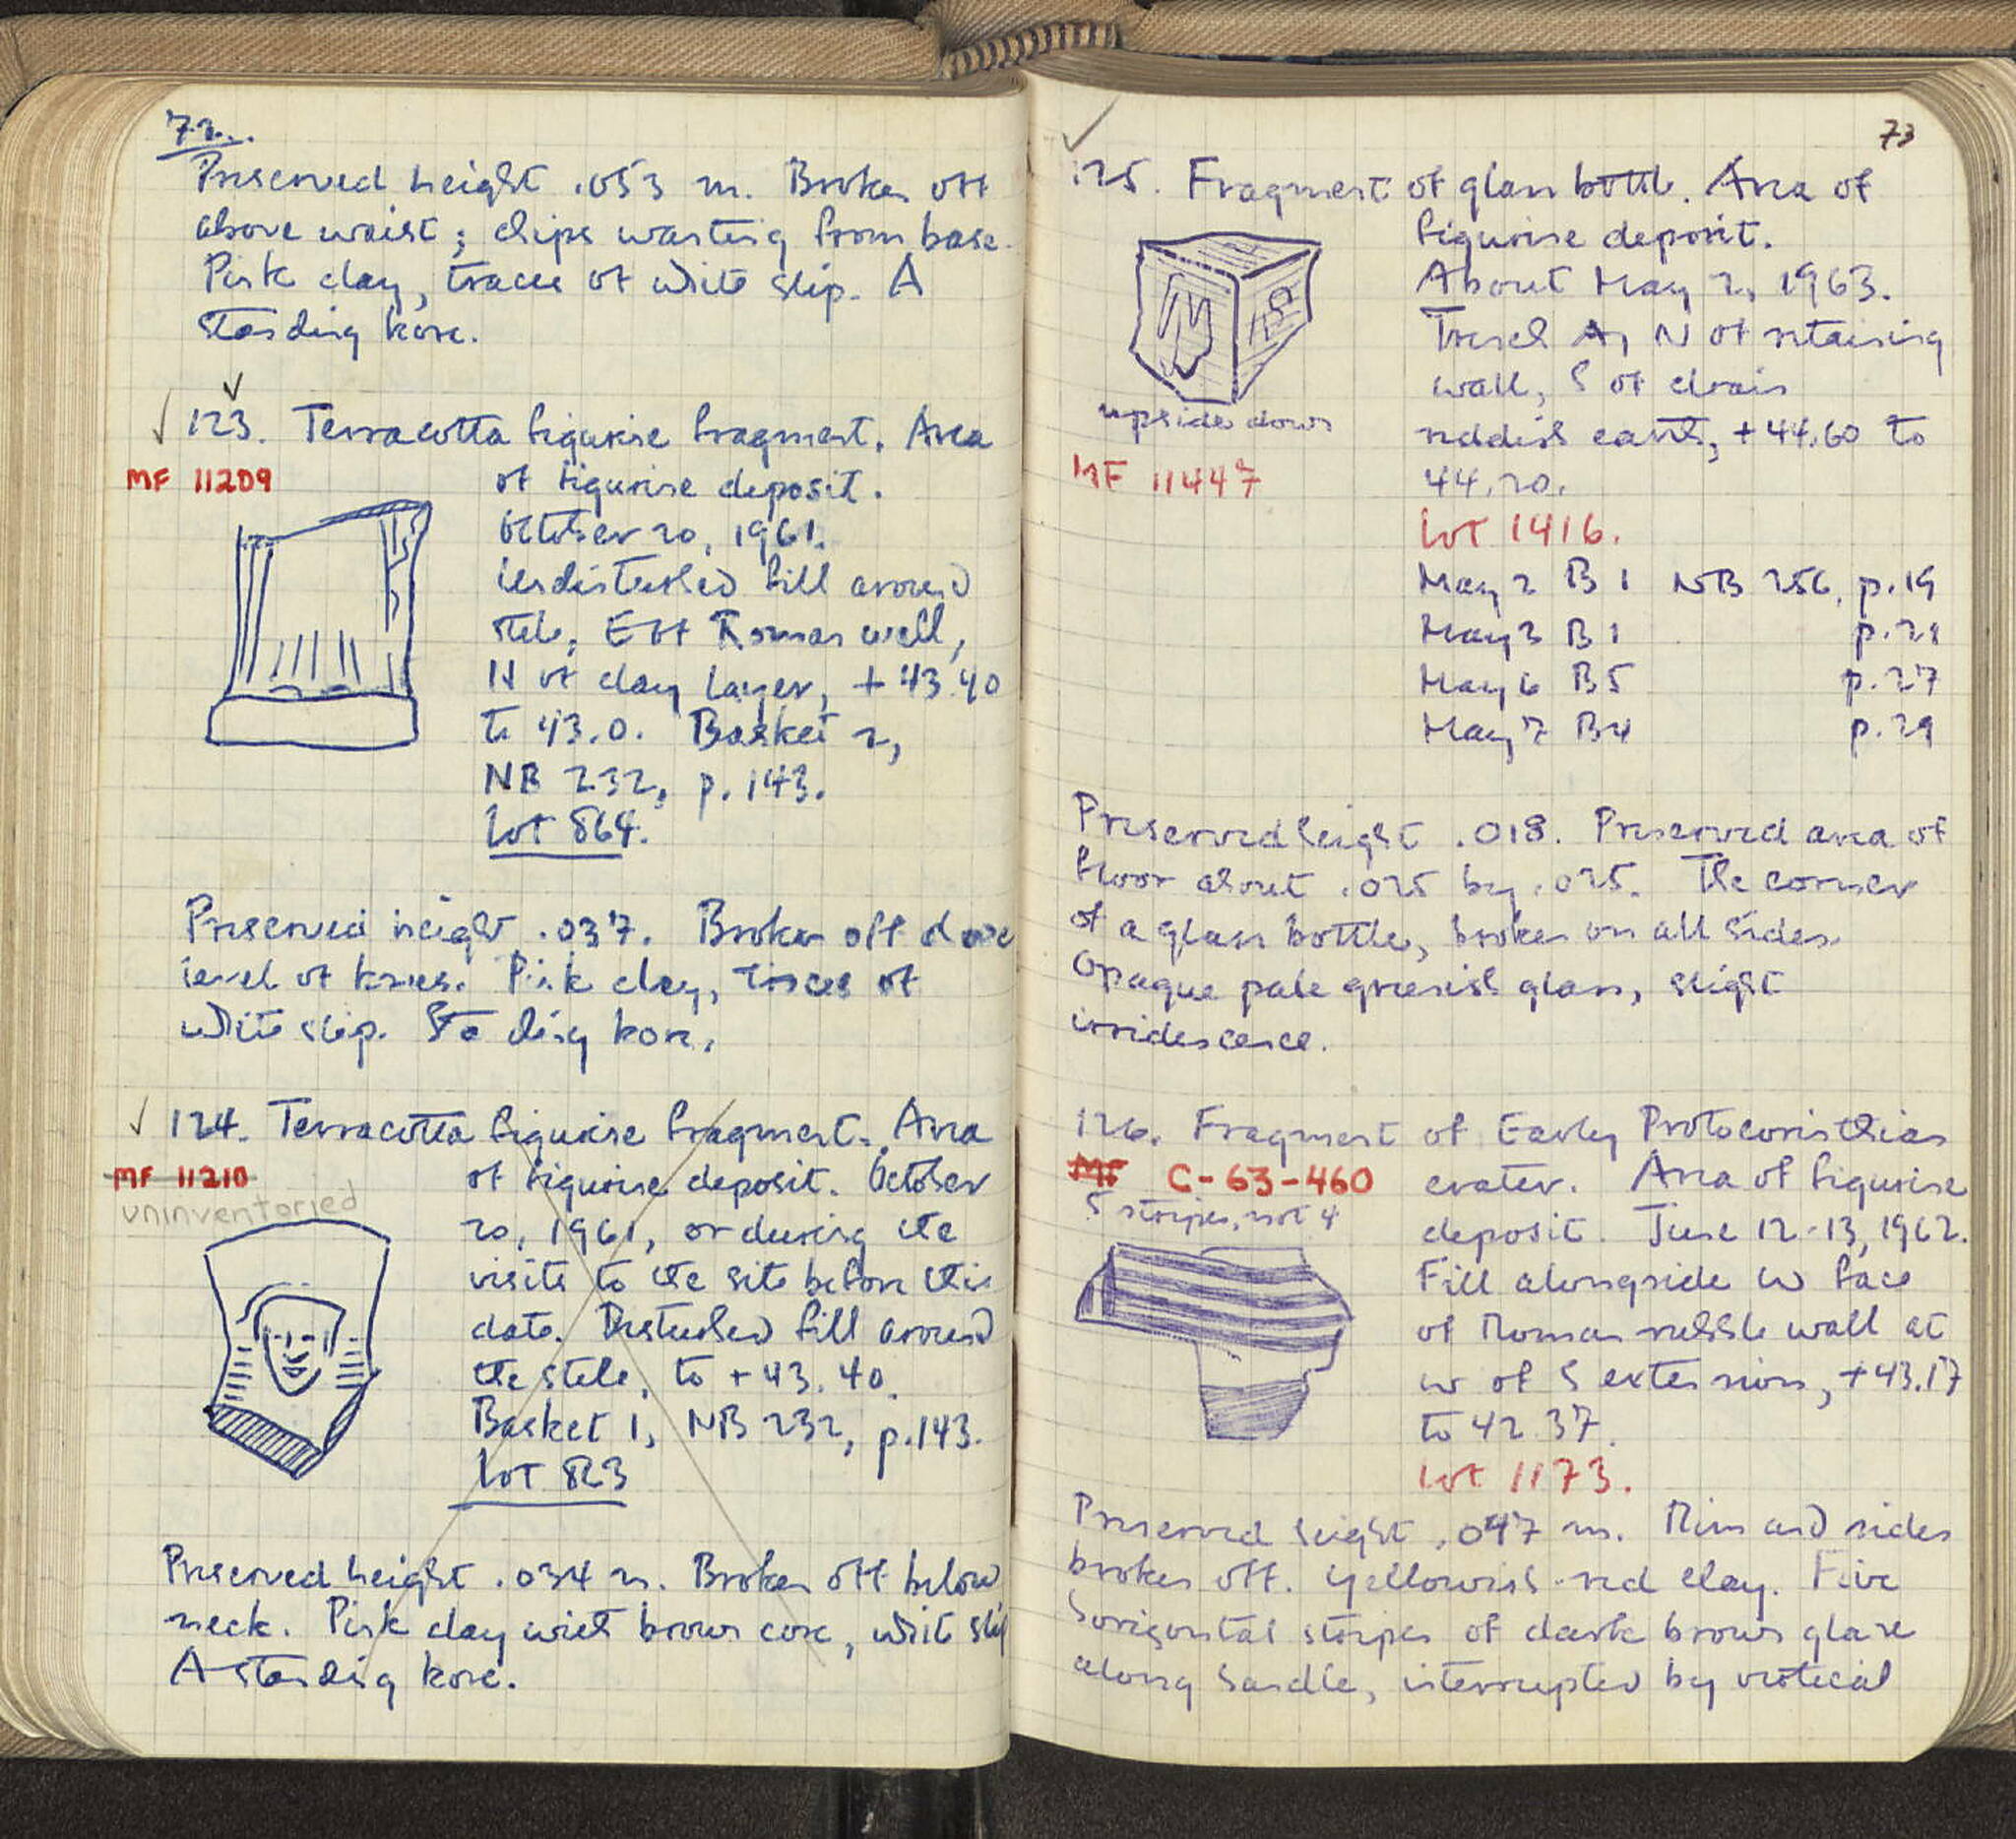 72.
Preserved height .053 m. Broken off
above waist; chips wanting from base.
Pink clay, traces of white slip. A
standing kore.
123. Terracotta figurine fragment. Area
MF 11209
of figurine deposit.
October 20, 1961.
Undisturbed fill around
stele, E of Roman well,
N of clay layer, + 43.40
to 43.0. Basket 2,
NB 232, p. 143.
Lot 864.
Preserved height .037. Broken off above
level of knees. Pink clay, traces of
white slip. Standing kore.
124. Terracotta figurine fragment. Area
MF 11210
uninventoried
of figurine deposit. October
20, 1961, or during the
visits to the site before this
date. Disturbed fill around
the stele, to + 43.40.
Basket 1, NB 232, p.143.
Lot 823
Preserved height .034 m. Broken off below
neck. Pink clay with brown core, white slip
A standing kore.
73
125. Fragment of glass bottle. Area of
figurine deposit.
About May 2, 1963.
Trench A, N of retaining
wall, S of drain
reddish earth, +44.60 to
44.20.
upside down
MF 11447
Lot 1416.
May 2 B 1 NB 256, p.19
May 3 B 1 p.21
May 6 B5 p.27
May 7 B4 p.29
Preserved height .018. Preserved area of
floor about .025 by .025. The corner
of a glass bottle, broken on all sides.
Opaque pale greenish glass, slight
irridescence.
126. Fragment of Early Protocorinthian
MF C-63-460
5 stripes, not 4
crater. Area of figurine
deposit. June 12-13, 1962.
Fill alongside W face
of Roman rubble wall at
W of S extension, +43.17
to 42.37.
Lot 1173.
Preserved height .047 m. Rim and sides
broken off. Yellowish-red clay. Five
horizontal stripes of dark brown glaze
along handle, interrupted by vertical